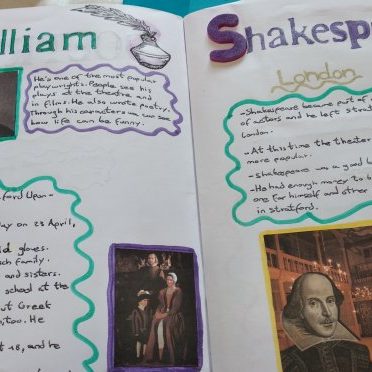 lliam
He's one of the most popular
playwrights. People see his
plays at the theatre and
in films. He also wrote poetry.
Through his characters we can see
how life can be funny.
ford Upon -
day on 23 April,
id gloves.
ch family.
and sisters.
school at the
ut Greet
too. He
t 18, and he
Shakesp
London
-Shakespeare became part of a
of actors and he left strat
London.
-At this time the theater
more popular.
-shakespeare was a good b
-He had enough money to b
one for himself and other
in stratford.